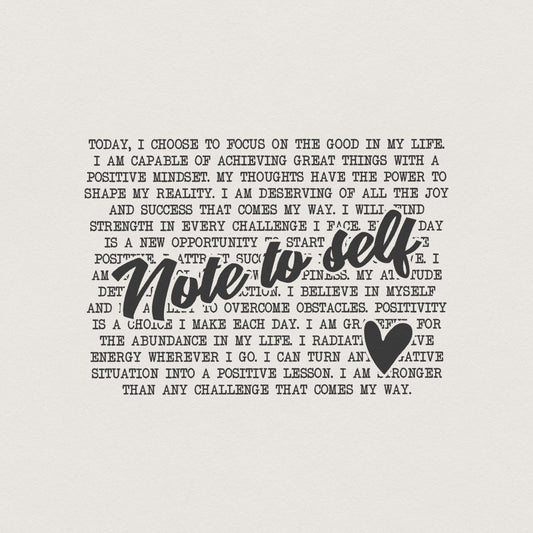 TODAY, I CHOOSE TO FOCUS ON THE GOOD IN MY LIFE.
I AM CAPABLE OF ACHIEVING GREAT THINGS WITH A
POSITIVE MINDSET. MY THOUGHTS HAVE THE POWER TO
SHAPE MY REALITY. I AM DESERVING OF ALL THE JOY
AND SUCCESS THAT COMES MY WAY. I WILL FIND
STRENGTH IN EVERY CHALLENGE I FACE. DAY
IS A NEW OPPORTUNITY TO START
I ATTRACT I
AM MY ATTITUDE
I BELIEVE IN MYSELF
AND TO OVERCOME OBSTACLES. POSITIVITY
IS A CHOICE I MAKE EACH DAY. I AM GRATEFUL FOR
THE ABUNDANCE IN MY LIFE. I
ENERGY WHEREVER I GO. I CAN TURN ANY NEGATIVE
SITUATION INTO A POSITIVE LESSON. I AM STRONGER
THAN ANY CHALLENGE THAT COMES MY WAY.
Note to self